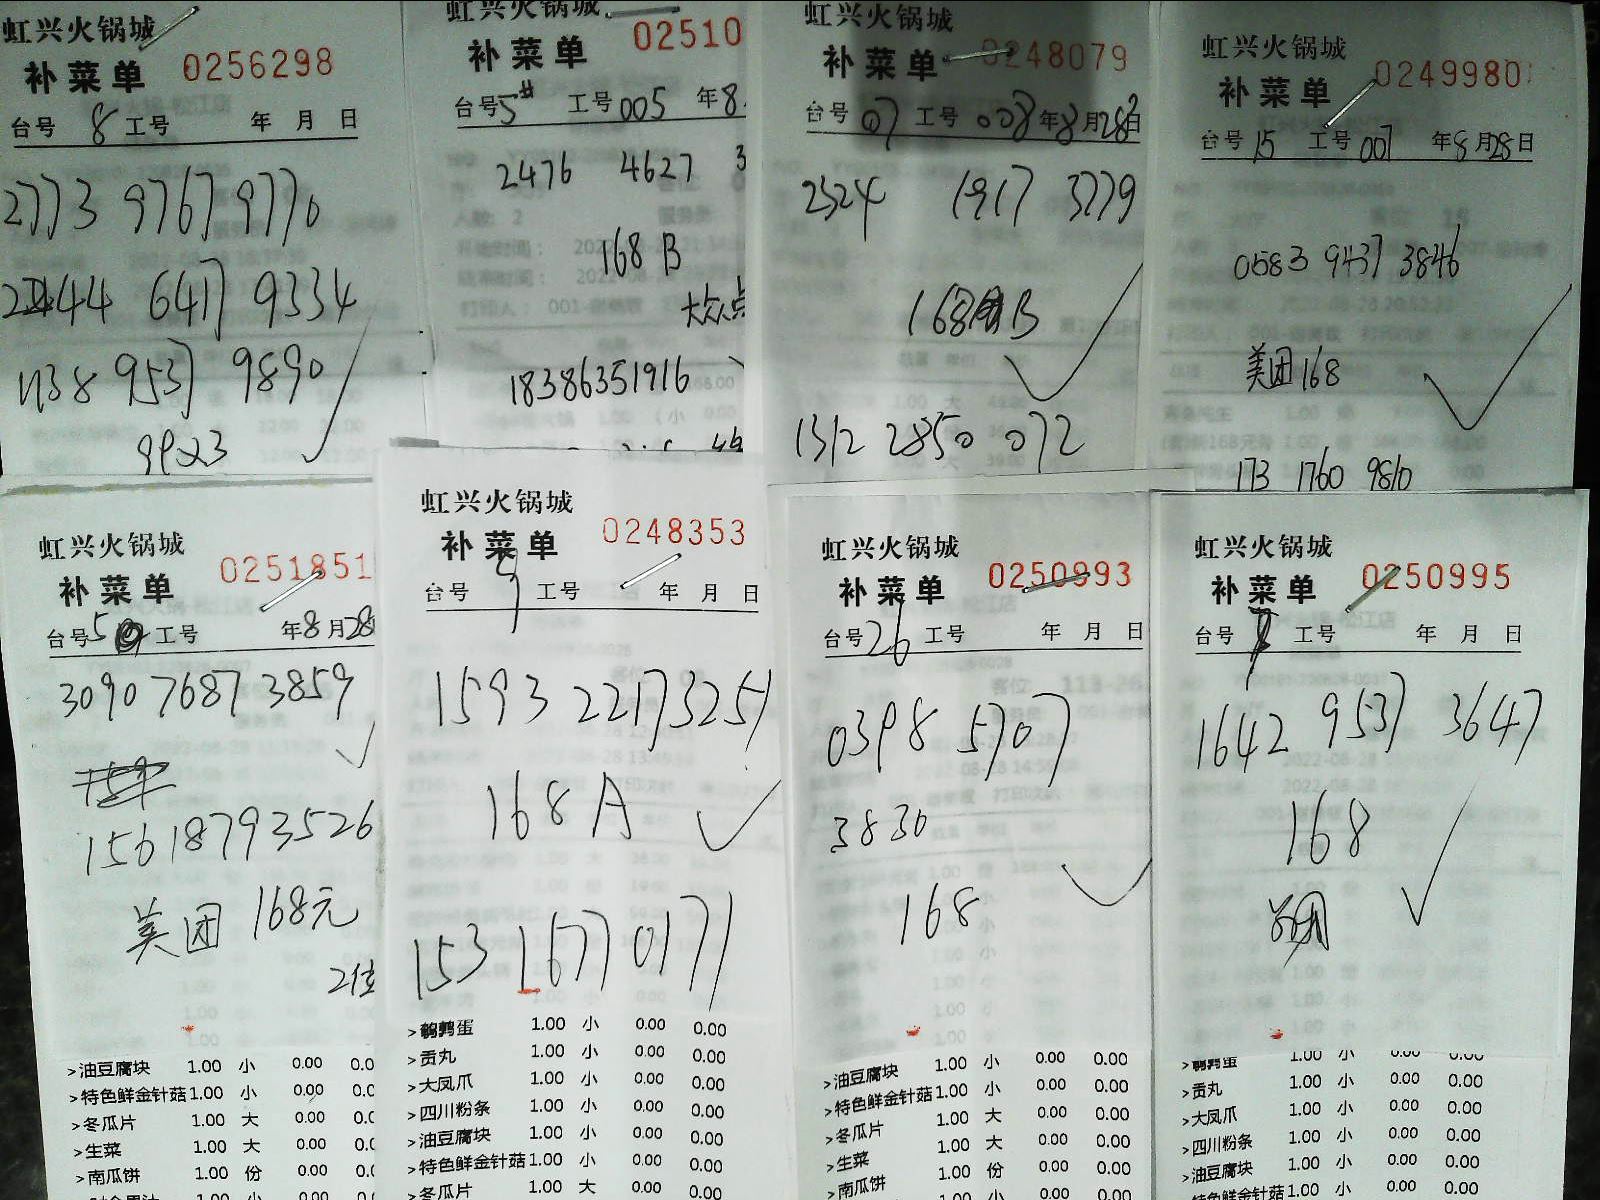 虹兴火锅城
补菜单 0256298
台号 8 工号 年 月 日
2773 9767 9770
2244 6417 9334
1138 9537 9890
99x23
虹兴火锅城
补菜单 02510
台号 5# 工号 005 年 8
2476 4627 3
168 B
大众点
18386351916
虹兴火锅城
补菜单 0248079
台号 07 工号 008 年 8 月 28 日
2324 1917 3779
168 B
1312 2850 072
虹兴火锅城
补菜单 0249980
台号 15 工号 007 年 8 月 28 日
0583 9437 3846
美团 168
173 1760 9810
虹兴火锅城
补菜单 0251851
台号 5 工号 年 8 月 28
3090 7687 3859
15618793526
美团 168元
2位
>油豆腐块 1.00 小 0.00 0.0
>特色鲜金针菇 1.00 小 0.00 0.0
>冬瓜片 1.00 大 0.00 0.0
>生菜 1.00 大 0.00 0.0
>南瓜饼 1.00 份 0.00 0.0
虹兴火锅城
补菜单 0248353
台号 9 工号 年 月 日
1593 2217 3251
168 A
153 1677 0171
>鹌鹑蛋 1.00 小 0.00 0.00
>贡丸 1.00 小 0.00 0.00
>大凤爪 1.00 小 0.00 0.00
>四川粉条 1.00 小 0.00 0.00
>油豆腐块 1.00 小 0.00 0.00
>特色鲜金针菇 1.00 小 0.00 0.00
>冬瓜片 1.00 大 0.00 0.00
虹兴火锅城
补菜单 0250993
台号 26 工号 年 月 日
0398 5707
3830
168
>油豆腐块 1.00 小 0.00 0.00
>特色鲜金针菇 1.00 小 0.00 0.00
>冬瓜片 1.00 大 0.00 0.00
>生菜 1.00 大 0.00 0.00
>南瓜饼 1.00 份 0.00 0.00
虹兴火锅城
补菜单 0250995
台号 工号 年 月 日
1642 9537 3647
168
>鹌鹑蛋 1.00 小 0.00 0.00
>贡丸 1.00 小 0.00 0.00
>大凤爪 1.00 小 0.00 0.00
>四川粉条 1.00 小 0.00 0.00
>油豆腐块 1.00 小 0.00 0.00
>特色鲜金针菇 1.00 小 0.00 0.00